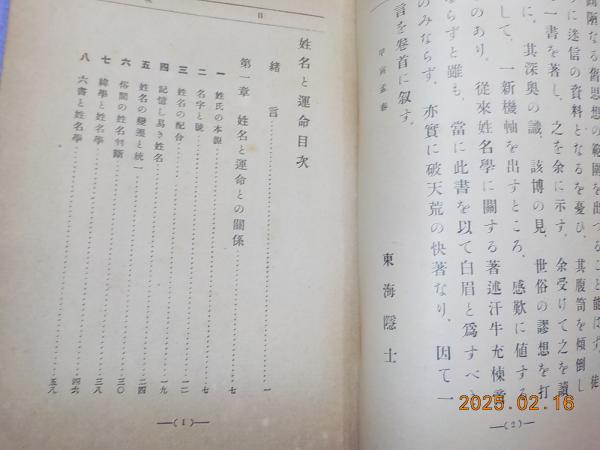 固陋なる舊思想の範圍を出づること能はず、徒
に迷信の資料となるを憂ひ、其腹笥を傾倒し
一書を著し、之を余に示す、余受けて之を讀
に、其深奥の識、該博の見、世俗の謬想を打
して、一新機軸を出すところ、感歎に値する
のあり、從來姓名學に關する著述汗牛充棟啻
ならずと雖も、當に此書を以て白眉と爲すべ
のみならず、亦實に破天荒の快著なり、因て一
言を卷首に叙す。
甲寅孟春
東海隱士
(2)
目
姓名と運命目次
緒言……一
第一章 姓名と運命との關係……七
一 姓氏の本源……七
二 名字と號……一二
三 姓名の配合……一九
四 記憶し易き姓名……二四
五 姓名の變遷と統一……三〇
六 俗間の姓名判斷……三八
七 緯學と姓名學……四六
八 六書と姓名學……五八
(1)
2025.02.16